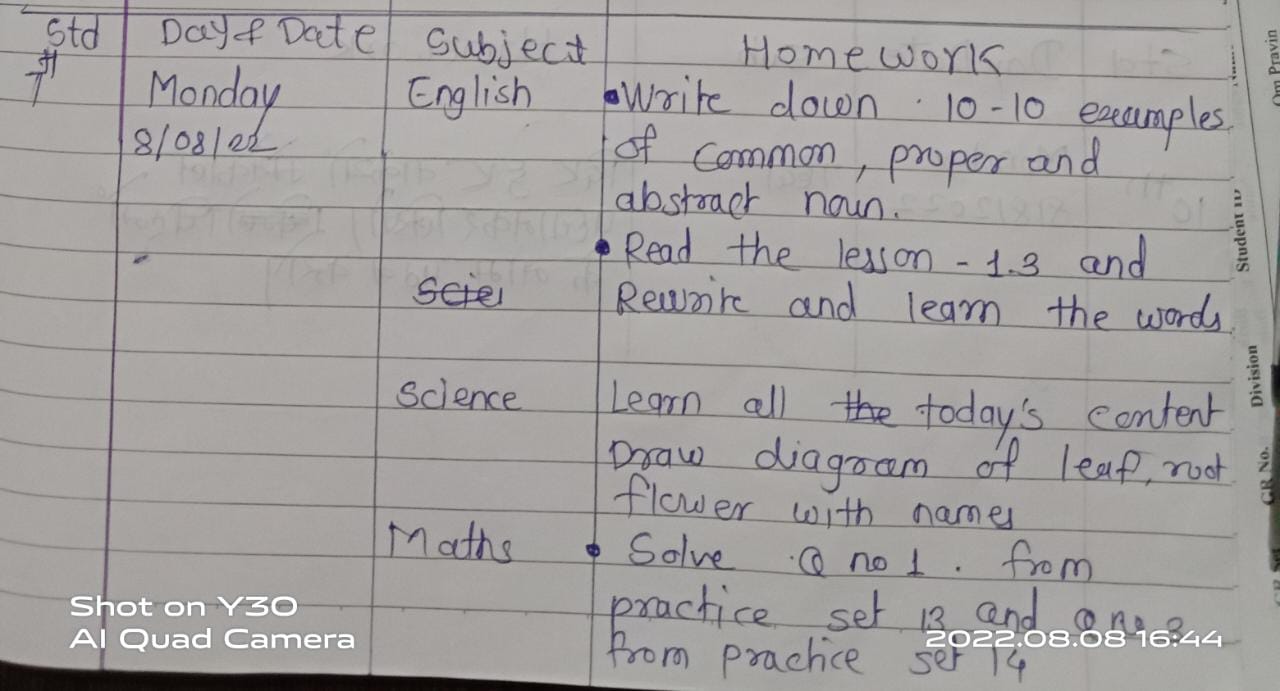 Std Day & Date Subject Homework
7th Monday English • Write down 10-10 examples
8/08/22 of common, proper and
abstract noun.
• Read the lesson - 1.3 and
Scie Rewrite and learn the words
Science Learn all the today's content
Draw diagram of leaf, root
flower with names
Maths • Solve Q no 1. from
practice set 13 and Q no
from practice set 14
Shot on Y30
AI Quad Camera
2022.08.08 16:44
Om Pravin
Student ID
Division
GR No.